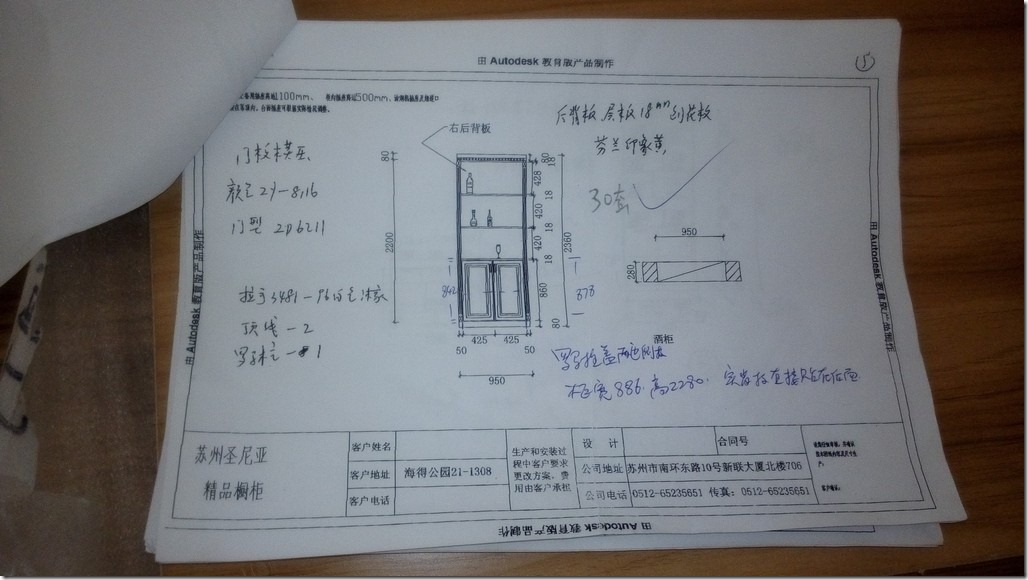 由 Autodesk 教育版产品制作
5
1100mm、
500mm、
右后背板
后背板 层板 18mm 刨花板
芬兰印象黄
30套
门板模压
颜色 29-8,16
门型 2个6211
拉手3481-96
顶线-2
罗马柱-1
80
2200
80
18
428
18
420
18
420
18
860
80
2360
842
878
425 425
50 50
950
950
280
酒柜
罗马柱盖两边侧板
柜宽886.高2280.
苏州圣尼亚
精品橱柜
客户姓名
客户地址 海得公园21-1308
客户电话
生产和安装过
程中客户要求
更改方案、费
用由客户承担
设 计 合同号
公司地址 苏州市南环东路10号新联大厦北楼706
公司电话 0512-65235651 传真：0512-65235651
由 Autodesk 教育版产品制作
由 Autodesk 教育版产品制作
由 Autodesk 教育版产品制作